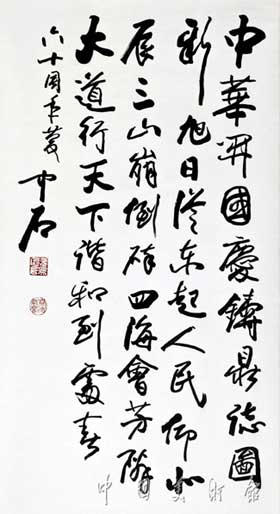 中華開國慶鑄鼎誌圖
新旭日從東起人民仰北
辰三山崩倒碎四海會芳隣
大道行天下谐和到處春
六十周年慶 中石
中国美術館